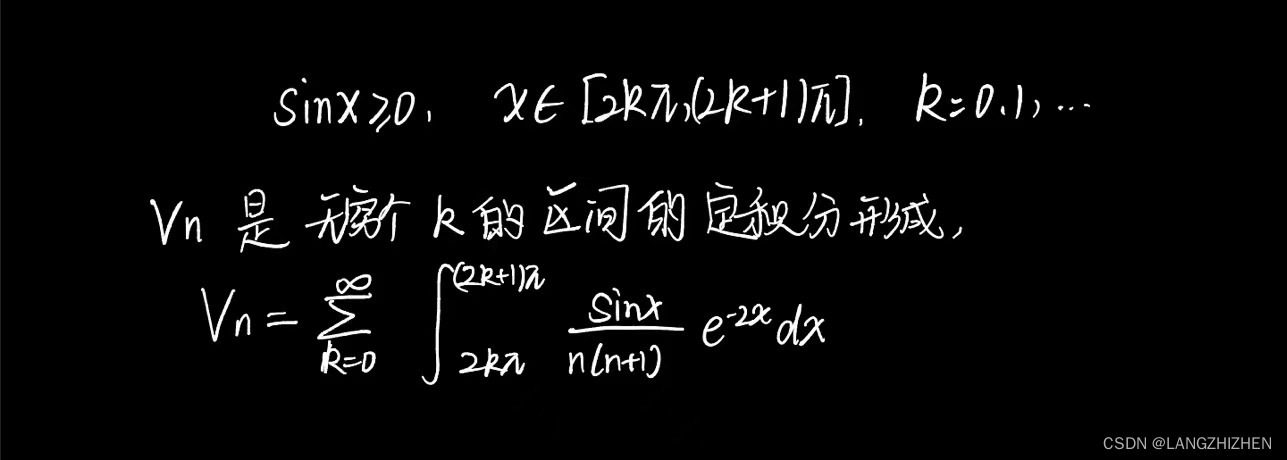 sinx≥0, x∈[2kπ,(2k+1)π], k=0.1,…
Vn 是 无穷个 k 的 区间 的 定积分 形成,
Vn = ∑_{k=0}^{∞} ∫_{2kπ}^{(2k+1)π} \frac{sinx}{n(n+1)} e^{-2x} dx
CSDN @LANGZHIZHEN